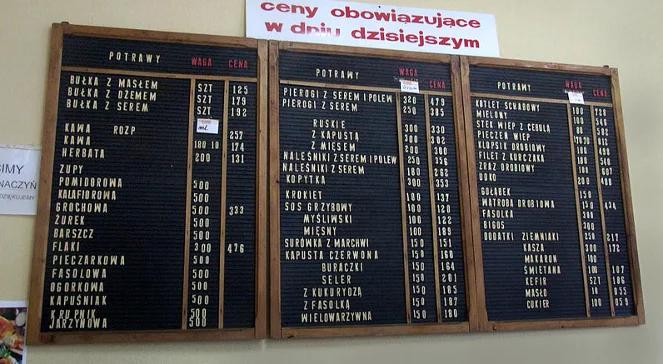 ceny obowiązujące
w dniu dzisiejszym
POTRAWY WAGA CENA
BUŁKA Z MASŁEM SZT 125
BUŁKA Z DŻEMEM SZT 179
BUŁKA Z SEREM SZT 192
ML
KAWA ROZP 257
KAWA 180 10 174
HERBATA 200 131
ZUPY
POMIDOROWA 500
KALAFIOROWA 500
GROCHOWA 500 333
ŻUREK 500
BARSZCZ 500
FLAKI 300 476
PIECZARKOWA 500
FASOLOWA 500
OGORKOWA 500
KAPUŚNIAK 500
KRUPNIK 500
JARZYNOWA 500
POTRAWY WAGA CENA
PIEROGI Z SEREM I POLEW 320 479
PIEROGI Z SEREM 250 385
RUSKIE 300 330
Z KAPUSTĄ 300 302
Z MIĘSEM 200 300
NALEŚNIKI Z SEREM I POLEW 250 356
NALEŚNIKI Z SEREM 180 262
KOPYTKA 300 353
KROKIET 100 137
SOS GRZYBOWY 100 120
MYŚLIWSKI 100 122
MIĘSNY 100 189
SURÓWKA Z MARCHWI 150 151
KAPUSTA CZERWONA 150 160
BURACZKI 150 164
SELER 150 201
Z KUKURYDZĄ 150 165
Z FASOLKĄ 150 187
WIELOWARZYWNA 150 180
POTRAWY WAGA CENA
KOTLET SCHABOWY
MIELONY
STEK WIEP Z CEBULĄ
PIECZEŃ WIEP
KLOPSIK DROBIOWY
FILET Z KURCZAKA
ZRAZ DROBIOWY
UDKO 200 400
GOŁĄBEK 150
WĄTROBA DROBIOWA 434
FASOLKA 200
BIGOS 300
DODATKI ZIEMNIAKI 250 217
KASZA 300 172
MAKARON 100
ŚMIETANA 100 107
KEFIR SZT 186
MASŁO 10 055
CUKIER 100 059
CIMY
NACZYŃ
DZIĘKUJEMY